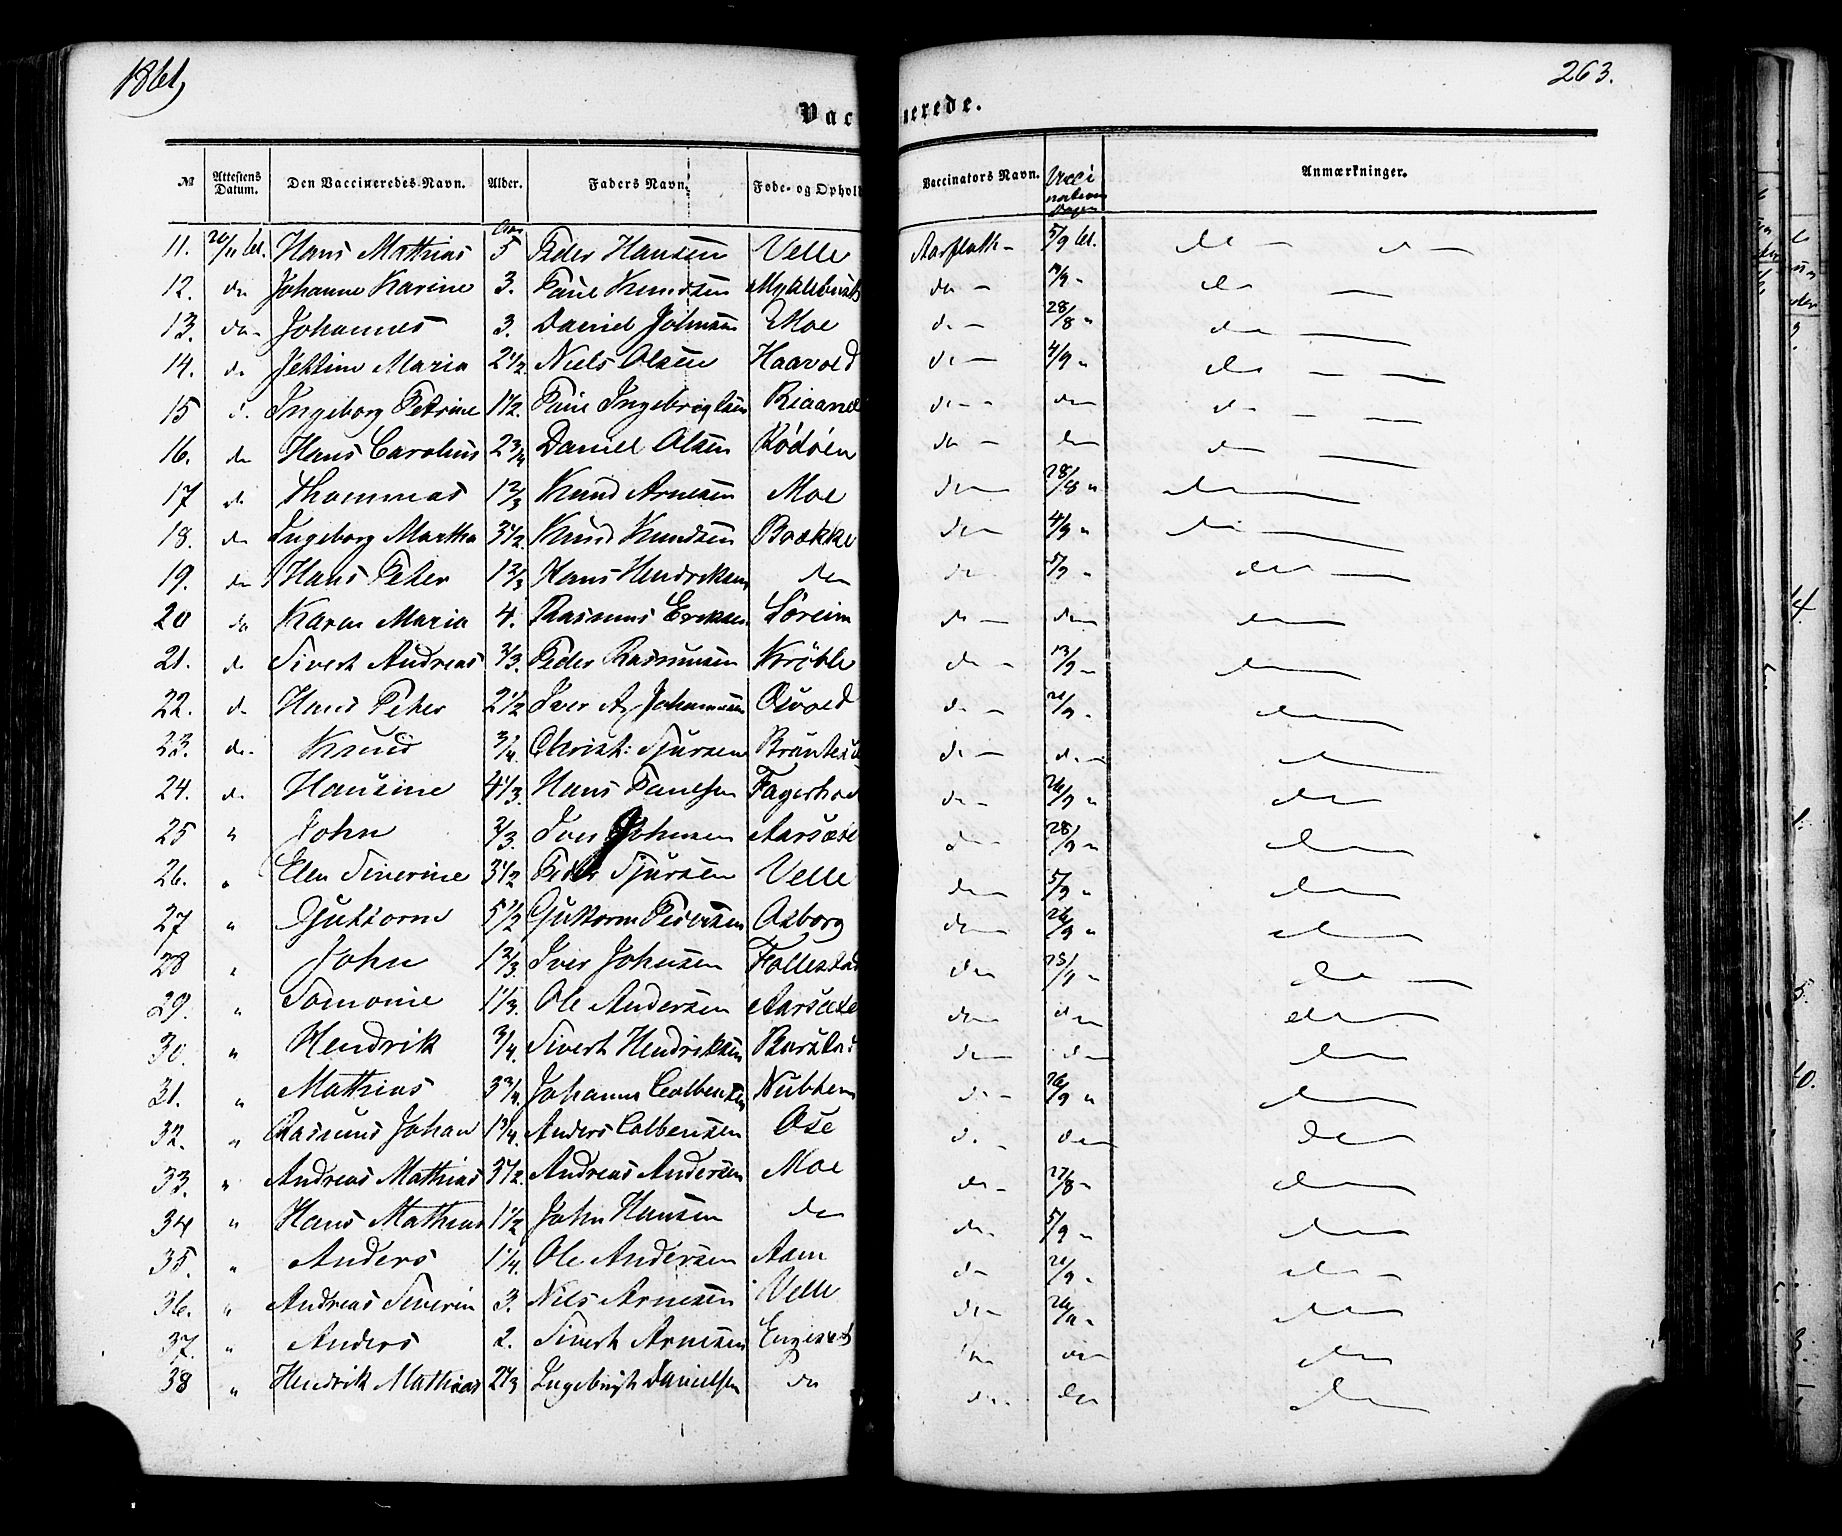 1861
263.
Vaccinerede.
№ Attestens Datum. Den Vaccineredes Navn. Alder. Faders Navn. Føde- og Ophold Vaccinators Navn. Vacci nations Dagen Anmærkninger.
Aar
11. 20/11 61. Hans Mathias 5 Peder Hansen Velle Aarflath - 5/9 61. do - do -
12. do Johanne Karine 3. Paul Knudsen Myklebust do - 11/9 - do -
13. do - Johannes 3. Daniel Johnsen Moe do - 28/8 " do -
14. do Jettine Maria 2 1/2 Niels Olsen Haavold do - 4/9 " do -
15 d. Ingeborg Petrine 1 1/2 Paul Ingebrigtsen Riaane do - do do -
16. do Hans Carolius 2 3/4 Daniel Olsen Rödöen do - do do -
17 do Thommas 1 2/3 Knud Arnesen Moe do - 28/8 " do -
18. do Ingeborg Martha 3 1/2 Knud Knudsen Bække do 4/9 " do -
19. do Hans Peter 1 2/3 Hans Hendriksen do do 5/9 - do -
20 do Karen Maria 4. Rasmus Eriksen Søreim do - do do
21. do Sivert Andreas 2/3. Peder Rasmussen Krøvle do - 13/9 - do
22. do Hans Peter 2 1/2 Iver A. Johannesen Osvold do - 21/9 - do
23. do - Knud 3/4. Christ: Sjursen do - do do
24. do Hansine 4 1/3. Hans Paulsen Fagerho do - 26/9 " do
25 " John 2/3. Iver Johnsen Aarsæte do - 28/9 " do
26. " Elen Siverine 3 1/2 Peder Sjursen Velle do 5/9 " do
27 " Guttorm 5 1/2 Guttorm Pedersen Aaborg do 26/9 " do
28 " John 1 2/3. Iver Johnsen Follestad do do
29. " 1 1/3. Ole Andersen Aarsæte do do do
30. " Hendrik 3/4. Sivert Hendriksen do do do
31. " Mathias 3 3/4. Johannes Colbensen do - 26/9 " do
32. " Rasmus Johan 1 3/4. Anders Colbensen Ose do - do do
33. " Andreas Mathias 3 1/2. Andreas Andersen Moe do - 27/8 - do
34 " Hans Mathias 1 1/2 John Hansen do do - 5/9 - do
35. " Anders 1 1/4. Ole Andersen Aam do - 21/9 - do -
36. " Andreas Siverin 3. Nils Arnesen Velle do - do
37. " Anders 2. Sivert Arnesen Engeset do do do
38 " Hendrik Mathias 2 1/3 Ingebrigt Danielsen do do - do do